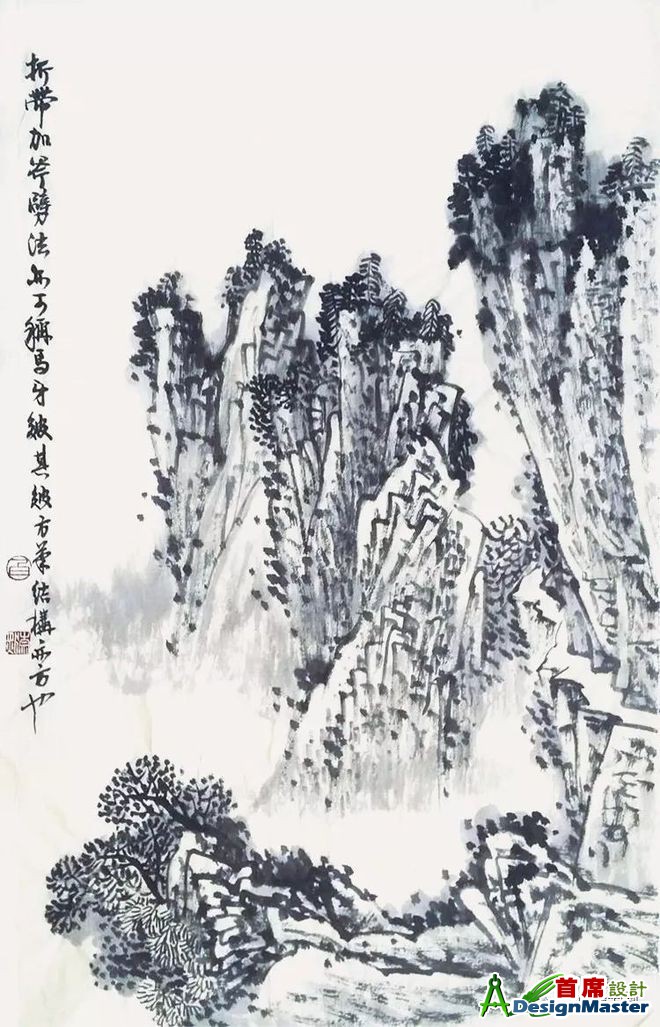 折带加斧劈法亦可稱馬牙皴其皴方筆结構亦方也
首席設計
ADesignMaster